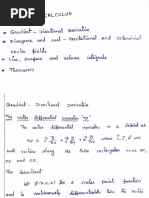 CALCULUS
Gradient - Directional Derivative
Divergence and curl - Irrotational and solenoidal
vector fields
Line, surface and volume integrals
Theorems
Gradient - Directional Derivative
The vector differential operator "∇"
The vector differential operator is defined as
where i, j, k are unit
vectors along the three rectangular axes ox, oy
and oz.
The Gradient
Let φ(x,y,z) be a scalar point function
and is continuously differentiable then the vector